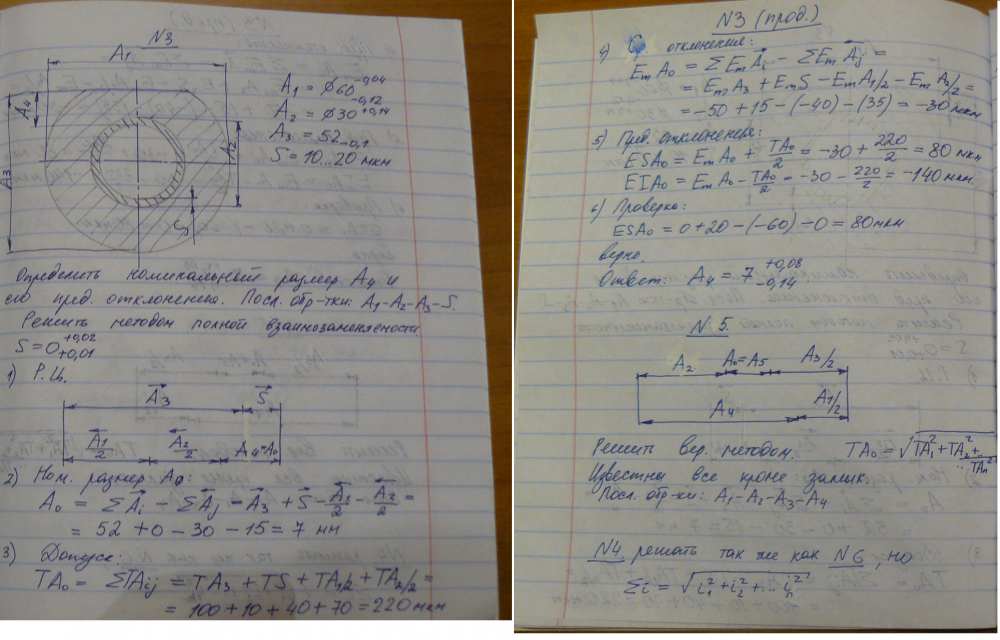 N3
A₁
A₁ = ⌀60⁻⁰,⁰⁴
₋₀,₁₂
A₂ = ⌀30⁺⁰,¹⁴
A₃ = 52₋₀,₁
S = 10...20 мкм
A₄
A₃
A₂
S
Определить номинальный размер A₄ и
его пред. отклонению. Посл. обр-тки: A₁-A₂-A₃-S.
Решить методом полной взаимозаменяемости
S = 0⁺⁰,⁰²₊₀,₀₁
1) Р.Ц.
A₃ S
A₁/2 A₂/2 A₄=A₀
2) Ном. размер A₀:
A₀ = ΣAᵢ - ΣAⱼ - A₃ + S - A₁/2 - A₂/2 =
= 52 + 0 - 30 - 15 = 7 мм
3) Допуск:
TA₀ = ΣTAij = TA₃ + TS + TA₁/2 + TA₂/2 =
= 100 + 10 + 40 + 70 = 220 мкм
N3 (прод.)
4) отклонения:
EmA₀ = ΣEmAᵢ - ΣEmAⱼ =
= EmA₃ + EmS - EmA₁/2 - EmA₂/2 =
= -50 + 15 - (-40) - (35) = -30 мкм
5) Пред. отклонения:
ESA₀ = EmA₀ + TA₀/2 = -30 + 220/2 = 80 мкм
EIA₀ = EmA₀ - TA₀/2 = -30 - 220/2 = -140 мкм.
6) Проверка:
ESA₀ = 0 + 20 - (-60) - 0 = 80 мкм
верно.
Ответ: A₄ = 7⁺⁰,⁰⁸₋₀,₁₄
N 5.
A₂ A₀=A₅ A₃/2
A₄ A₁/2
Решить вер. методом. TA₀ = √TA₁² + TA₂² + ... TAn²
Известны все кроме замык.
Посл. обр-ки: A₁-A₂-A₃-A₄
N4. решать так же как N6, но
Σi = √i₁² + i₂² + ... iₙ²